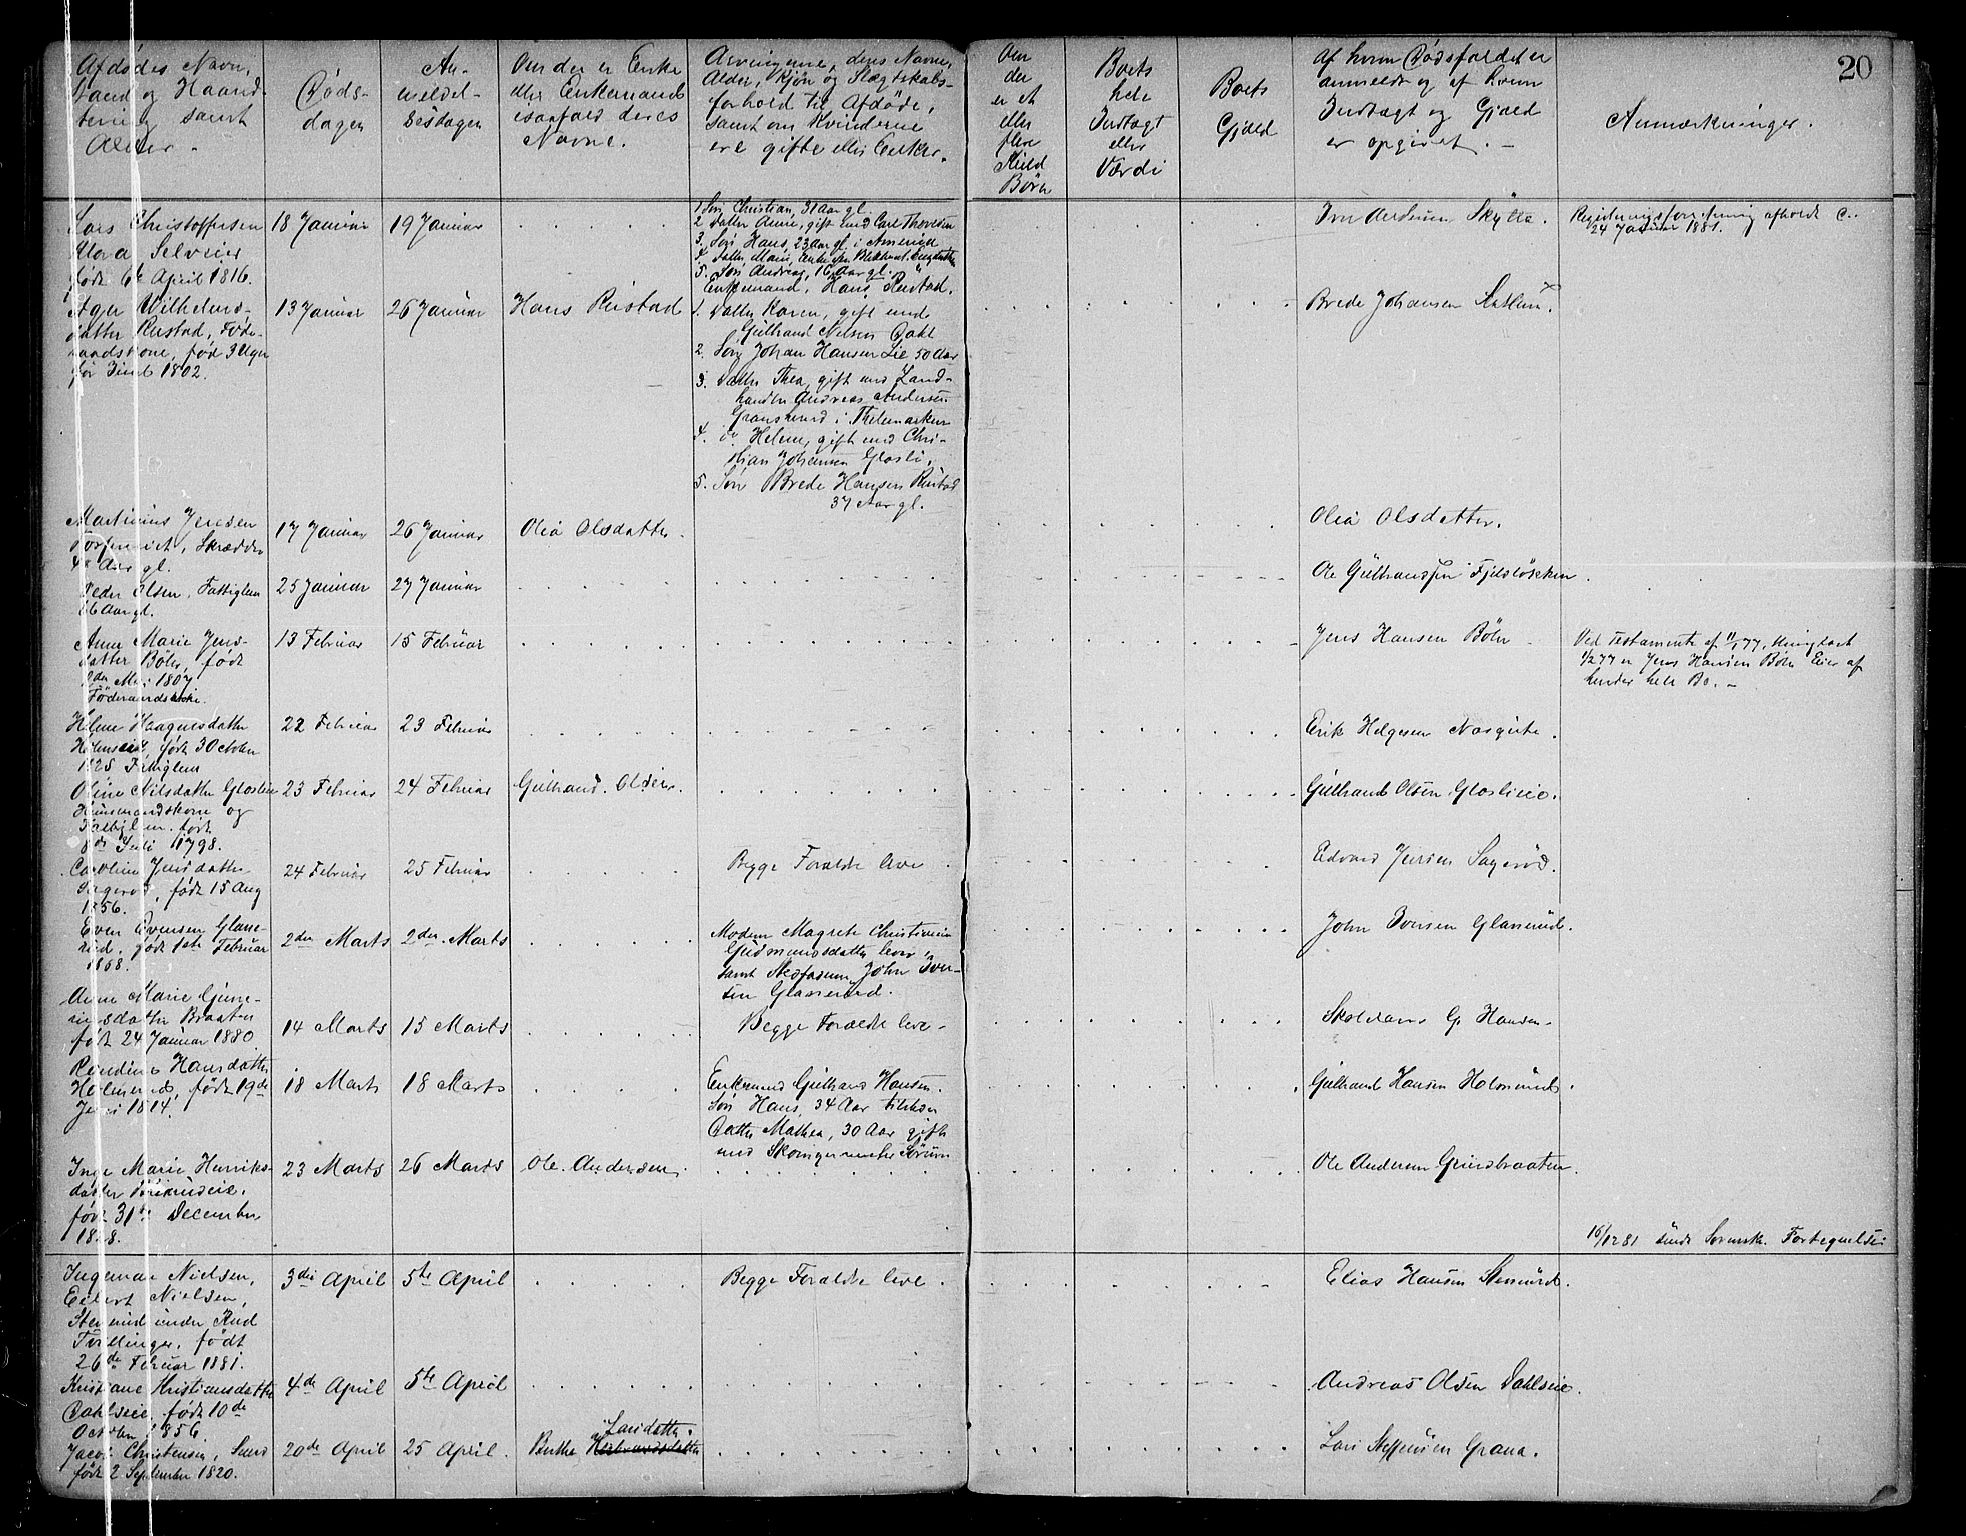 20
Afdødes Navn,
Stand og Haand-
tering samt
Alder. -
Døds-
dagen
An-
meldel-
sesdagen
Om der er Enke
eller Enkemand
isaafald deres
Navne.
Arvingerne, deres Navne,
Alder, Kjøn og Slægtskabs-
forhold til Afdøde,
samt om Kvinderne
ere gifte eller Enker.
Om
der
er et
eller
flere
Kuld
Børn
Boets
hele
Indtægt
eller
Værdi
Boets
Gjæld
Af hvem Dødsfaldet er
anmeldt og af hvem
Indtægt og Gjæld
er opgivet. -
Anmærkninger.
Lars Christoffersen
født 6te April 1816.
18 Januar
19 Januar
1. Søn Christian, 31 Aar gl.
2. Datter Anne, gift med Carl Thoresen
3. Søn Hans, 23 Aar gl. i Amerika
4. Datter Marie, Enke
5. Søn Andreas, 16 Aar gl.
Iver Andersen
Registreringsforretning afholdt
24 Januar 1881.
Wilhelms-
datter Rustad, Føde-
raadskone, født
1802.
13 Januar
26 Januar
Hans Rustad
Enkemand, Hans Rustad.
1. Datter Karen, gift med
Gulbrand Nilsen Dahl
2. Søn Johan Hansen Lie 50 Aar
3. Datter Thea, gift med Land-
handler Andreas Andersen
i Thelemarken
4. do Helene, gift med Chri-
stian Johansen Glosli.
5. Søn Brede Hansen Rustad
37 Aar gl.
Brede Johansen
Martinius Jensen
Skrædder
Aar gl.
17 Januar
26 Januar
Olea Olsdatter.
Olea Olsdatter.
Peder Olsen, Fattiglem
Aar gl.
25 Januar
27 Januar
Ole Gulbrandsen
Anne Marie Jens-
datter Böhn, født
Mai 1807
Föderaadskone.
13 Februar
15 Februar
Jens Hansen Böhn
Ved Testamente af 11/1 77,
er Jens Hansen Böhn Eier af
hendes hele Bo. -
Helene Haagensdatter
født 30 October
1825 Fattiglem
22 Februar
23 Februar
Erik Helgesen
Oline Nilsdatter Gloslieie
Husmandskone og
Fattiglem. født
8de Juli 1798.
23 Februar
24 Februar
Gulbrand Olsen.
Gulbrand Olsen Gloslieie.
Caroline Jensdatter
Sagerød, født 15 Aug
1856.
24 Februar
25 Februar
Begge Forældre leve
Edvard Jensen Sagerød.
Even Evensen Glasse-
rud, født 1ste Februar
1868.
2den Marts
2den Marts
Modern Magrete Christiane
Gudmundsdatter lever
samt Stedfaderen John Iver-
sen Glasserud.
John Iversen Glasserud.
Anne Marie Gunne-
riusdatter Braaten
født 24 Januar 1880.
14 Marts
15 Marts
Begge Forældre leve.
Skoledaner G. Hansen.
Hansdatter
Holmerud, født 19de
1814.
18 Marts
18 Marts
Enkemand Gulbrand Hansen.
Søn Hans, 34 Aar
Datter Mathea, 30 Aar gift
med
Gulbrand Hansen Holmerud.
Inge Marie Henriks-
datter
født 31te December
1828.
23 Marts
26 Marts
Ole Andersen
Ole Andersen
16/12 81 sendt Sorensk. Fortegnelse
Ingemar Nielsen,
Eilert Nielsen,
Stenerud under Rud
Tvillinger, født
26de Februar 1881.
3die April
5te April
Begge Forældre leve.
Elias Hansen Stenerud.
Kristiane Kristiansdatter
Dahlseie, født 10de
October 1856.
4de April
5te April
Andreas Olsen Dahlseie.
Jacob Christensen, Sund
født 2 September 1820.
20de April
25 April.
Larsdatter.
Berthe
Lars Steffensen Grana.